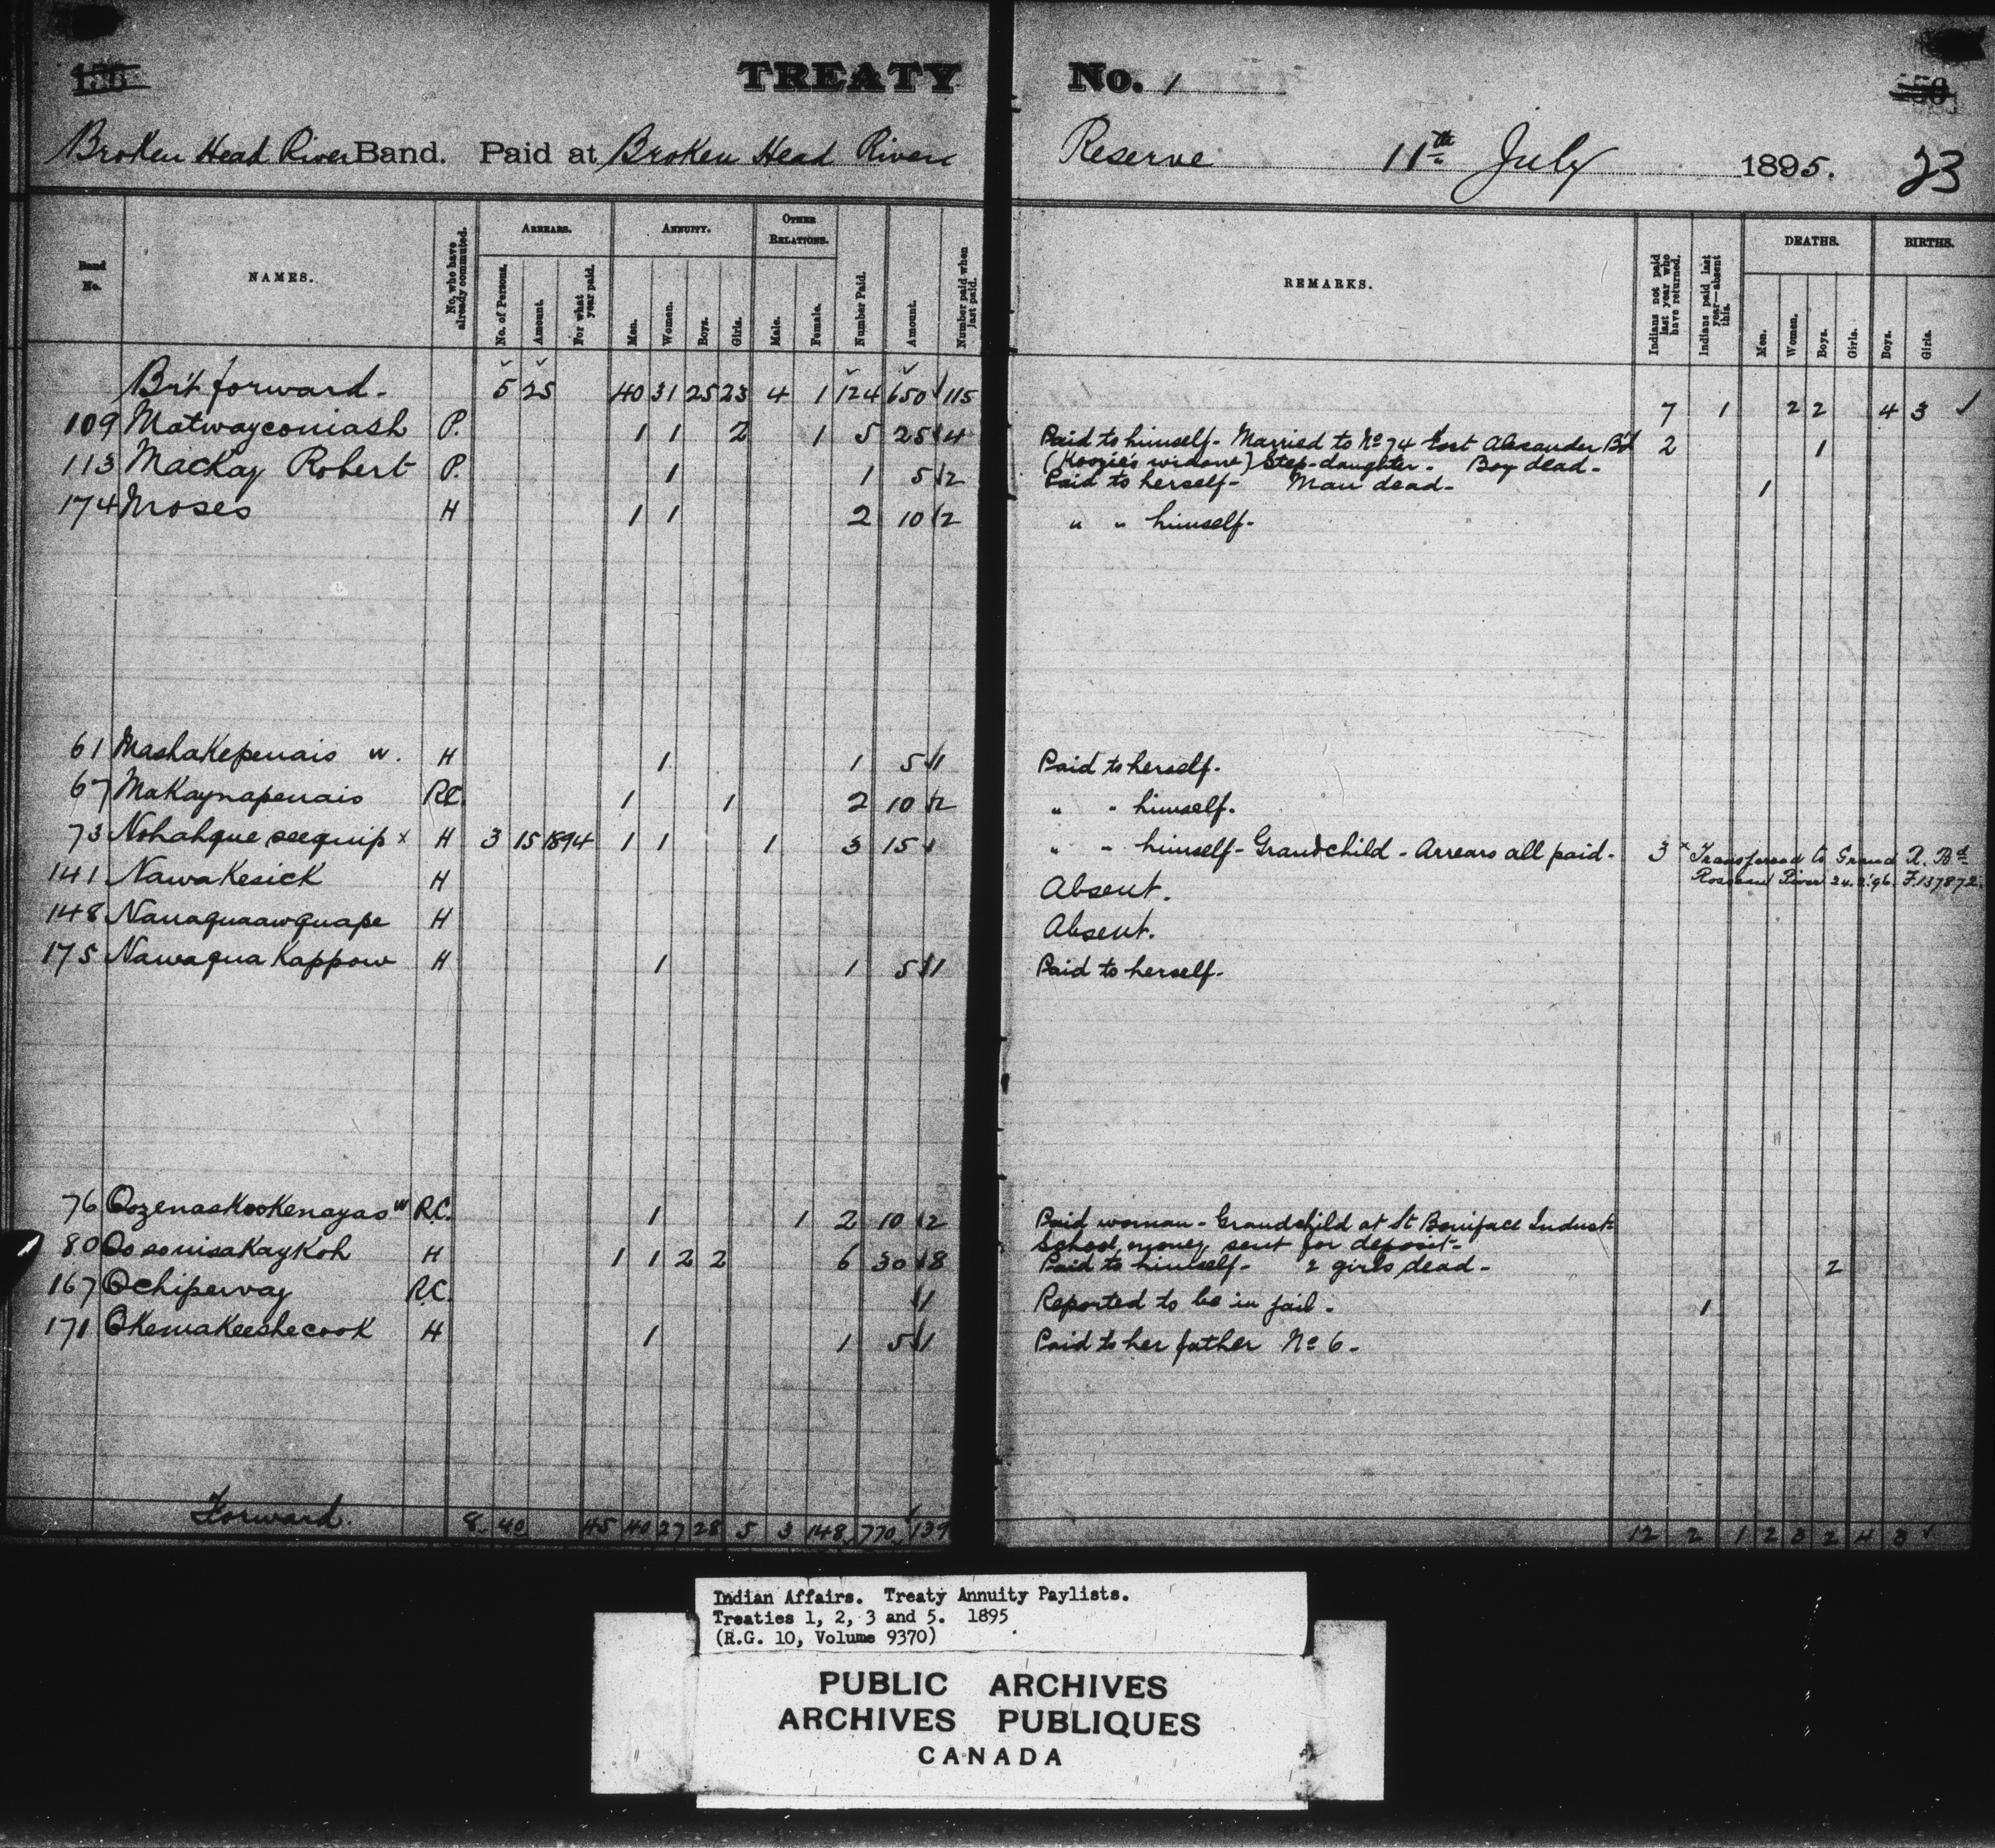 TREATY No. 1
Broken Head River Band. Paid at Broken Head River Reserve 11th July 1895. 23
Band No. NAMES. No. who have already commuted. ARREARS. No. of Persons. Amount. For what year paid. ANNUITY. Men. Women. Boys. Girls. OTHER RELATIONS. Male. Female. Number Paid. Amount. Number paid when last paid. REMARKS. Indians not paid last year who have returned. Indians paid last year—absent this. DEATHS. Men. Women. Boys. Girls. BIRTHS. Boys. Girls.
Br't forward - 5 25 40 31 25 23 4 1 124 650 115 7 1 2 2 4 3 ✓
109 Matwayconiash P. 1 1 2 1 5 25 4 Paid to himself - Married to No 74 Fort Alexander Bd 2 1
(Koozie's widow) Step-daughter - Boy dead -
113 Mackay Robert P. 1 1 5 2 Paid to herself - Man dead - 1
174 Moses H 1 1 2 10 2 " " himself -
61 Mashakepenais w. H 1 1 5 1 Paid to herself.
67 Makaynapenais R.C. 1 1 2 10 2 " " himself.
73 Nohahque seequip x H 3 15 1894 1 1 1 3 15 " " himself - Grandchild - Arrears all paid - 3 x Transferred to Grand R. Bd
Roseau River 24.2.96. F.137872.
141 Nawakesick H Absent.
148 Nanaquaawquape H Absent.
175 Nawaqua Kappow H 1 1 5 1 Paid to herself -
76 Oozenaskookenayas w R.C. 1 1 2 10 2 Paid woman - Grandchild at St Boniface Indust
School, money sent for deposit -
80 Oosouisakaykoh H 1 1 2 2 6 30 8 Paid to himself - 2 girls dead - 2
167 Ochipeway R.C. 1 Reported to be in jail. 1
171 Okemakeeshecook H 1 1 5 1 Paid to her father No 6 -
Forward. 8 40 45 40 27 28 5 3 148 770 139 12 2 1 2 3 2 4 3 ✓
Indian Affairs. Treaty Annuity Paylists.
Treaties 1, 2, 3 and 5. 1895
(R.G. 10, Volume 9370)
PUBLIC ARCHIVES
ARCHIVES PUBLIQUES
CANADA